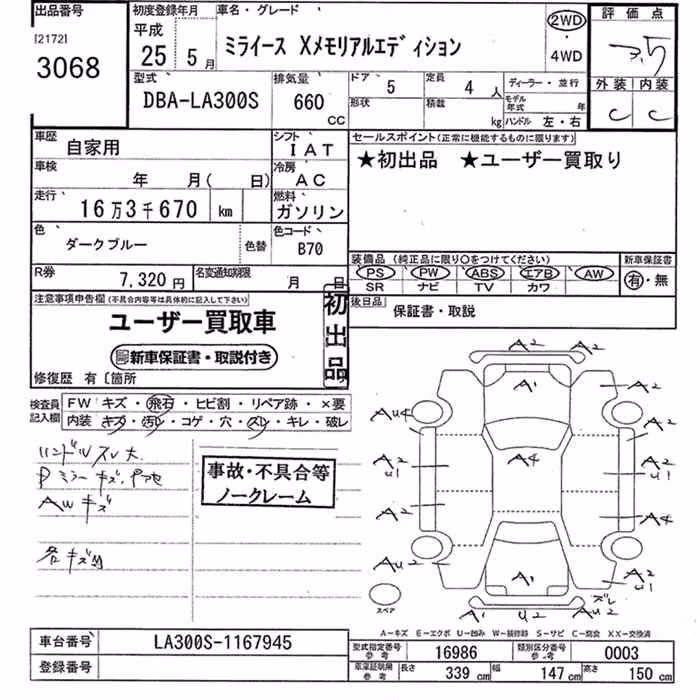 出品番号 初度登録年月 車名・グレード 評価点
[2172] 平成 2WD
3068 25年 5月 ミライース Xメモリアルエディション ・ 3.5
4WD
型式 排気量 ドア 5 定員 4人 ディーラー・並行 外装 内装
DBA-LA300S 660cc 形状 積載 kg モデル年式 年 C C
ハンドル 左・右
車歴 自家用 シフト IAT セールスポイント(正常に機能するものに限ります)
車検 年 月( 日) 冷房 AC ★初出品 ★ユーザー買取り
走行 16万3千670 km 燃料 ガソリン
色 ダークブルー 色替 色コード B70
装備品 (純正品に限り○をつけてください) 新車保証書
PS ・ PW ・ ABS ・ エアB ・ AW 有・無
SR ナビ TV カワ
R券 7,320円 名変通知期限 月 日
後日品 保証書・取説
注意事項申告欄(不具合内容等は具体的に記入して下さい)
初出品
ユーザー買取車
新車保証書・取説付き
修復歴 有〔箇所
検査員記入欄 FW キズ・飛石・ヒビ割・リペア跡・×要
内装 キズ・汚レ・コゲ・穴・スレ・キレ・破レ
ハンドルスレ大
AWキズ
各キズ凹
事故・不具合等
ノークレーム
A2 A2
A1 A2
AU4 A2
A2 U1 A4 A2 U1
A2 A4
AU2 A2 U1
A1 スレ
A1 U2 AU2
スペア
A―キズ E―エクボ U―凹み W―補修跡 S―サビ C―腐食 XX―交換済
車台番号 LA300S-1167945 型式指定番号 参考 16986 類別区分番号 参考 0003
登録番号 車庫証明用 参考 長さ 339cm 幅 147cm 高さ 150cm